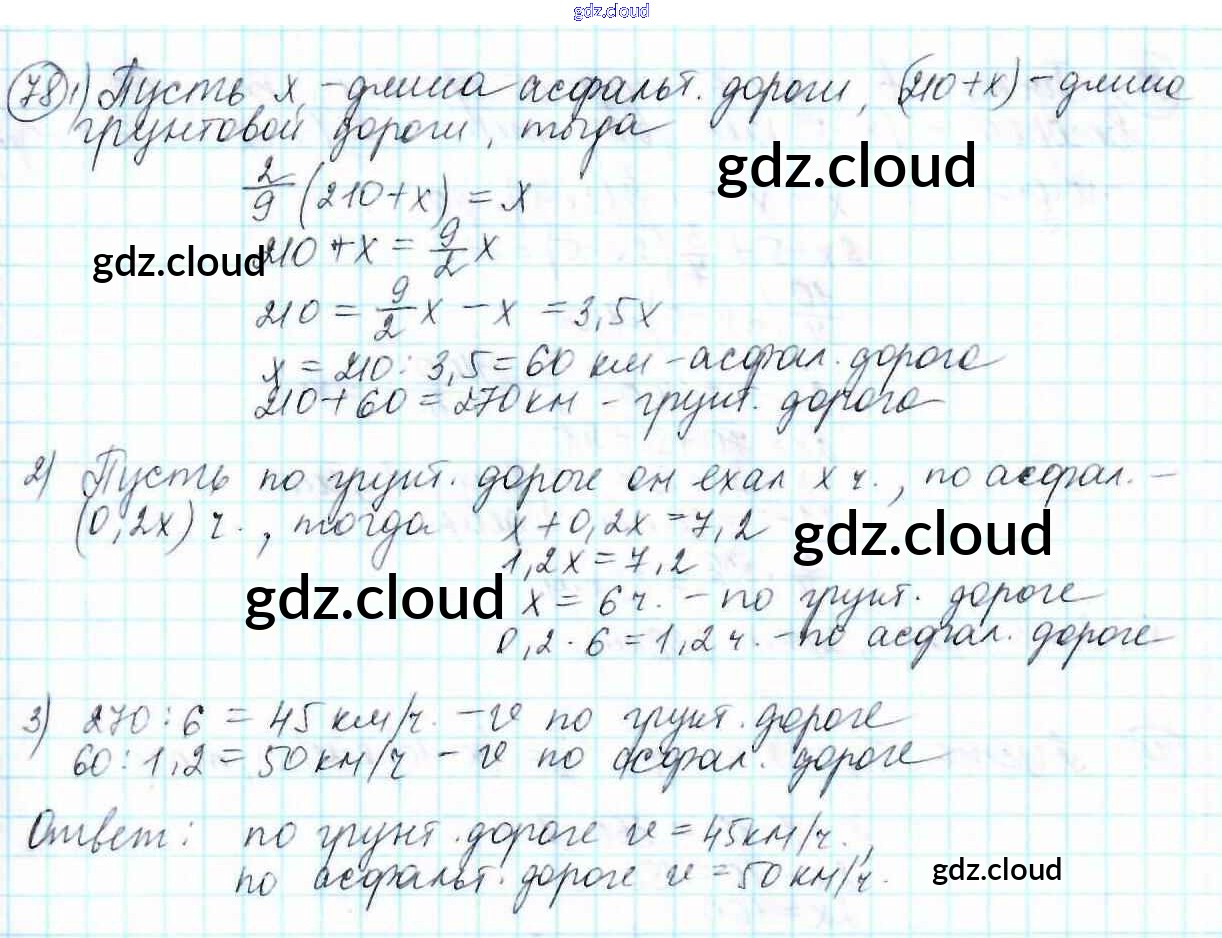 gdz.cloud
78 1) Пусть x - длина асфальт. дороги, (210+x) - длина
грунтовой дороги, тогда
gdz.cloud
2/9 (210+x) = x
gdz.cloud
210 + x = 9/2 x
210 = 9/2 x - x = 3,5x
x = 210 : 3,5 = 60 км - асфал. дорога
210+60 = 270 км - грунт. дорога
2) Пусть по грунт. дороге он ехал x ч., по асфал. -
(0,2x) ч., тогда x + 0,2x = 7,2
gdz.cloud
1,2x = 7,2
gdz.cloud
x = 6 ч. - по грунт. дороге
0,2 · 6 = 1,2 ч. - по асфал. дороге
3) 270 : 6 = 45 км/ч. - v по грунт. дороге
60 : 1,2 = 50 км/ч - v по асфал. дороге
Ответ: по грунт. дороге v = 45 км/ч.,
по асфальт. дороге v = 50 км/ч.
gdz.cloud